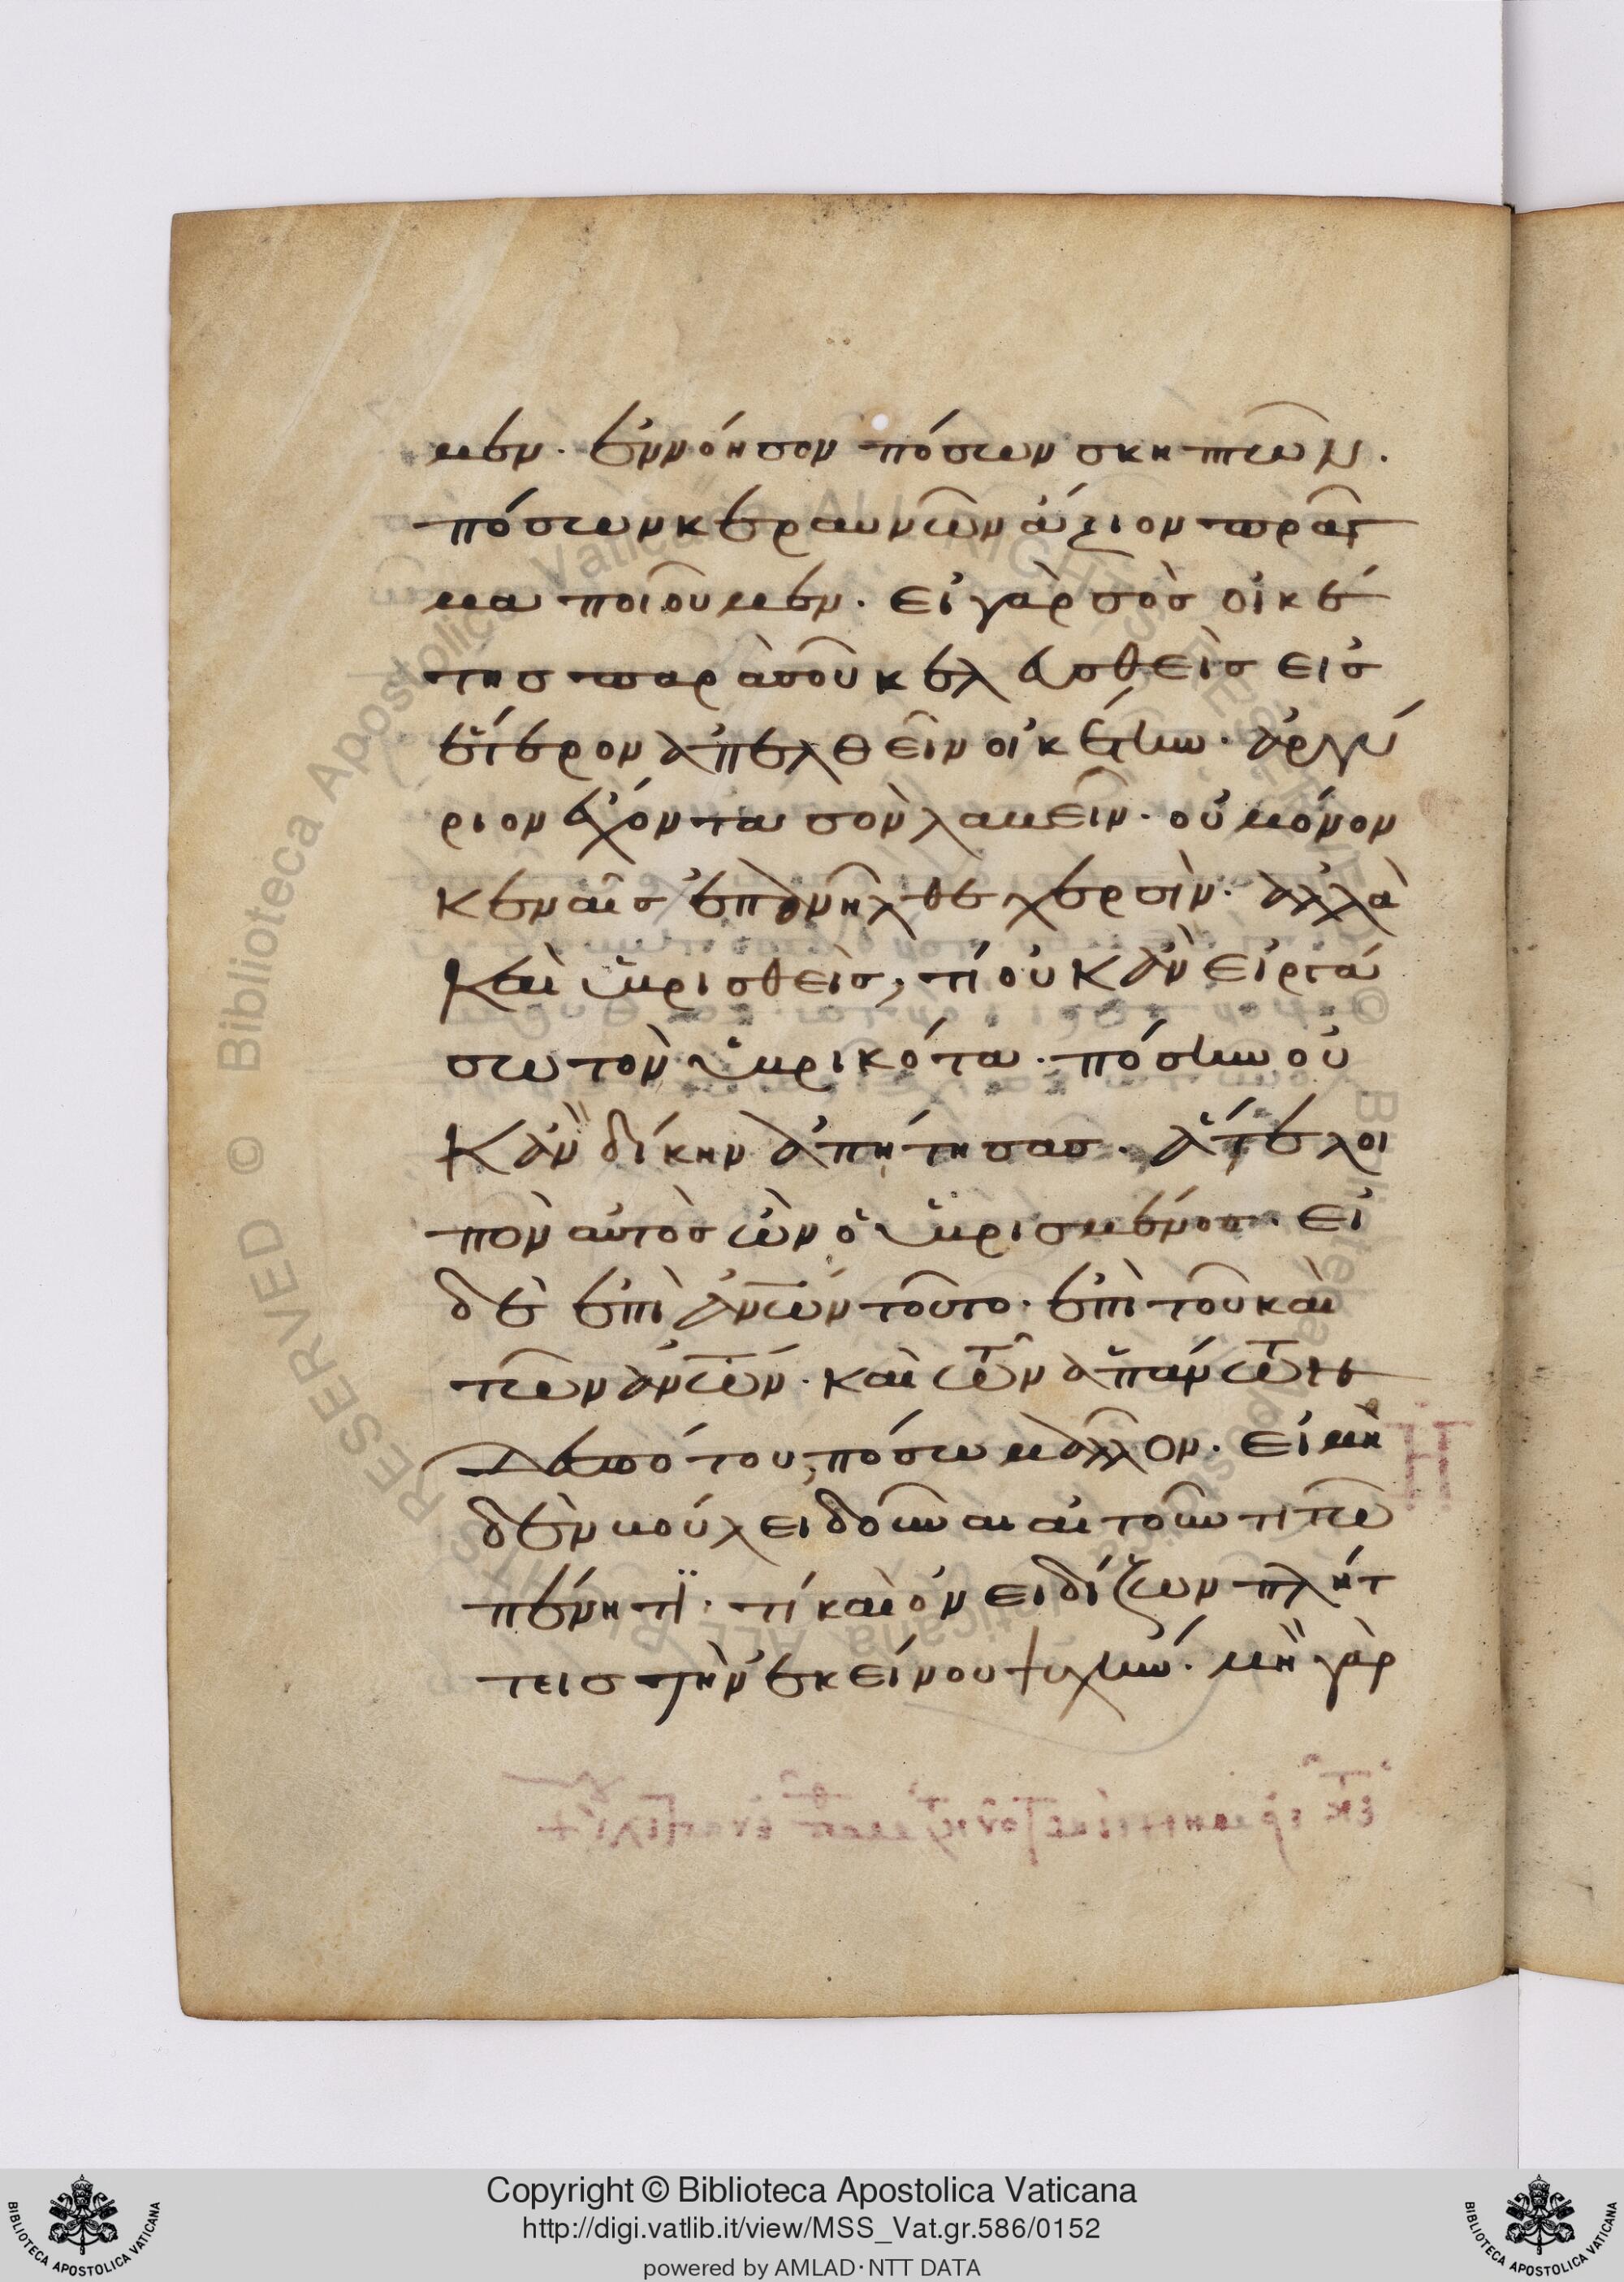 μεν. ἐννόησον πόσων σκηπτῶν.
πόσων κεραυνῶν ἄξιον πρᾶγ
μα ποιοῦμεν. εἰ γὰρ σὸς οἰκέ
της παρὰ σοῦ κελευσθεὶς εἰς
ἕτερον ἀπελθεῖν οἰκέτην. ἀργύ
ριον ἔχοντα σὸν λαβεῖν. οὐ μόνον
κεναῖς ἐπανῆλθε χερσὶν. ἀλλὰ
καὶ ὑβρισθεὶς, τί οὐκ ἂν εἰργά
σω τὸν ὑβρικότα. πόσην οὐ
κ ἂν δίκην ἀπῄτησας. ἅτε λοι
πὸν αὐτὸς ὢν ὁ ὑβρισμένος. εἰ
δὲ ἐπὶ ἀνῶν τοῦτο. ἐπὶ τοῦ καὶ
τῶν ἀνῶν. καὶ τῶν ἁπάντων
δεσπότου, πόσω μᾶλλον. εἰ μη
δὲν βούλει δοῦναι αἰτοῦντι τῶ
πένητϊ. τί καὶ ὀνειδίζων πλήτ
τεις τὴν ἐκείνου ψυχήν. μὴ γὰρ
Copyright © Biblioteca Apostolica Vaticana
http://digi.vatlib.it/view/MSS_Vat.gr.586/0152
powered by AMLAD·NTT DATA
BIBLIOTECA APOSTOLICA VATICANA
BIBLIOTECA APOSTOLICA VATICANA